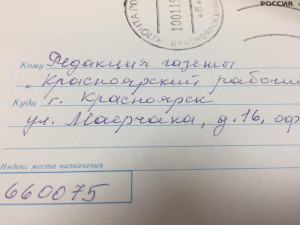 РОССИЯ
ПОЧТА РОС
10011
КРАСНОЯРСК
Кому Редакция газеты
„Красноярский рабочий
Куда г. Красноярск
ул. Маерчака, д.16, оф
Индекс места назначения
660075